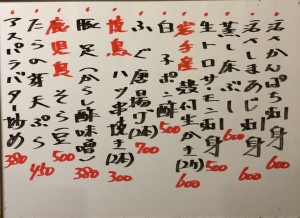 活〆かんぱち刺身 600
活〆しまあじ刺身 600
蒸し床ぶし 600
生トロサーモン刺身 500
岩手産 殻付生かき(2ケ) 600
白子ポン酢 500
ふぐ唐揚げ(2本) 700
焼鳥 ハツ串焼き(2本) 300
豚足(からし酢味噌) 380
鹿児島 そら豆 500
たらの芽天ぷら 450
アスパラバター炒め 380